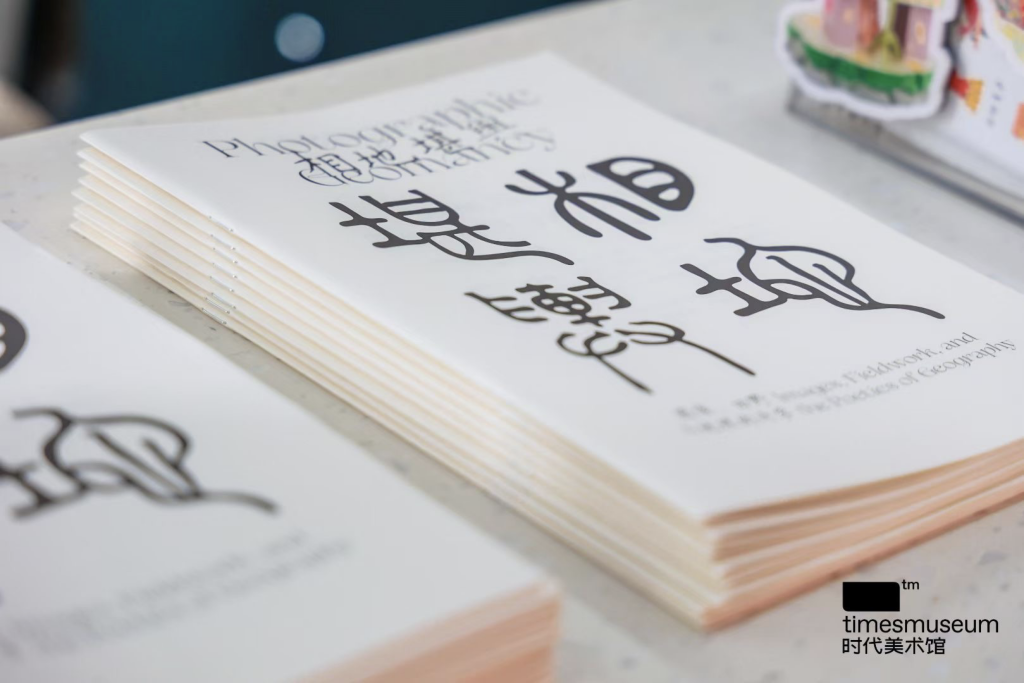 Photographic
相地堪舆
Geomancy
相地
堪輿
Images, Fieldwork, and
the Poetics of Geography
tm
timesmuseum
时代美术馆